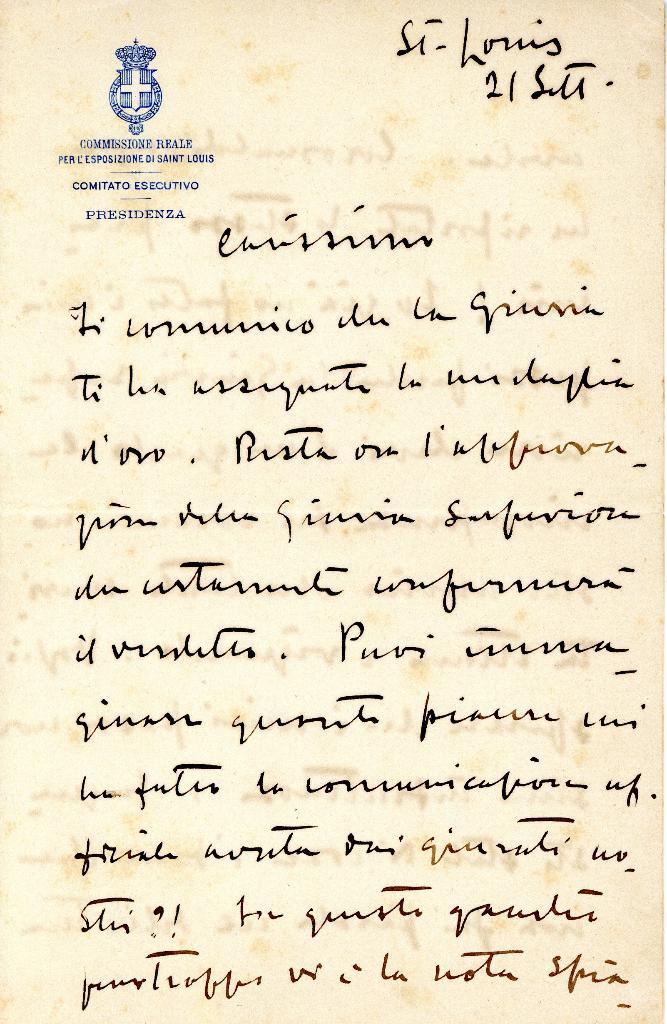 St-Louis
21 Sett.
COMMISSIONE REALE
PER L'ESPOSIZIONE DI SAINT LOUIS
COMITATO ESECUTIVO
PRESIDENZA
Carissimo
Ti comunico che la Giuria
ti ha assegnato la medaglia
d'oro. Resta ora l'approva-
zione della Giuria Superiore
che certamente confermerà
il verdetto. Puoi imma-
ginare quanto piacere mi
ha fatto la comunicazione uf-
ficiale avuta dai giurati no-
stri?! In questo gaudio
purtroppo vi è la nota spia-